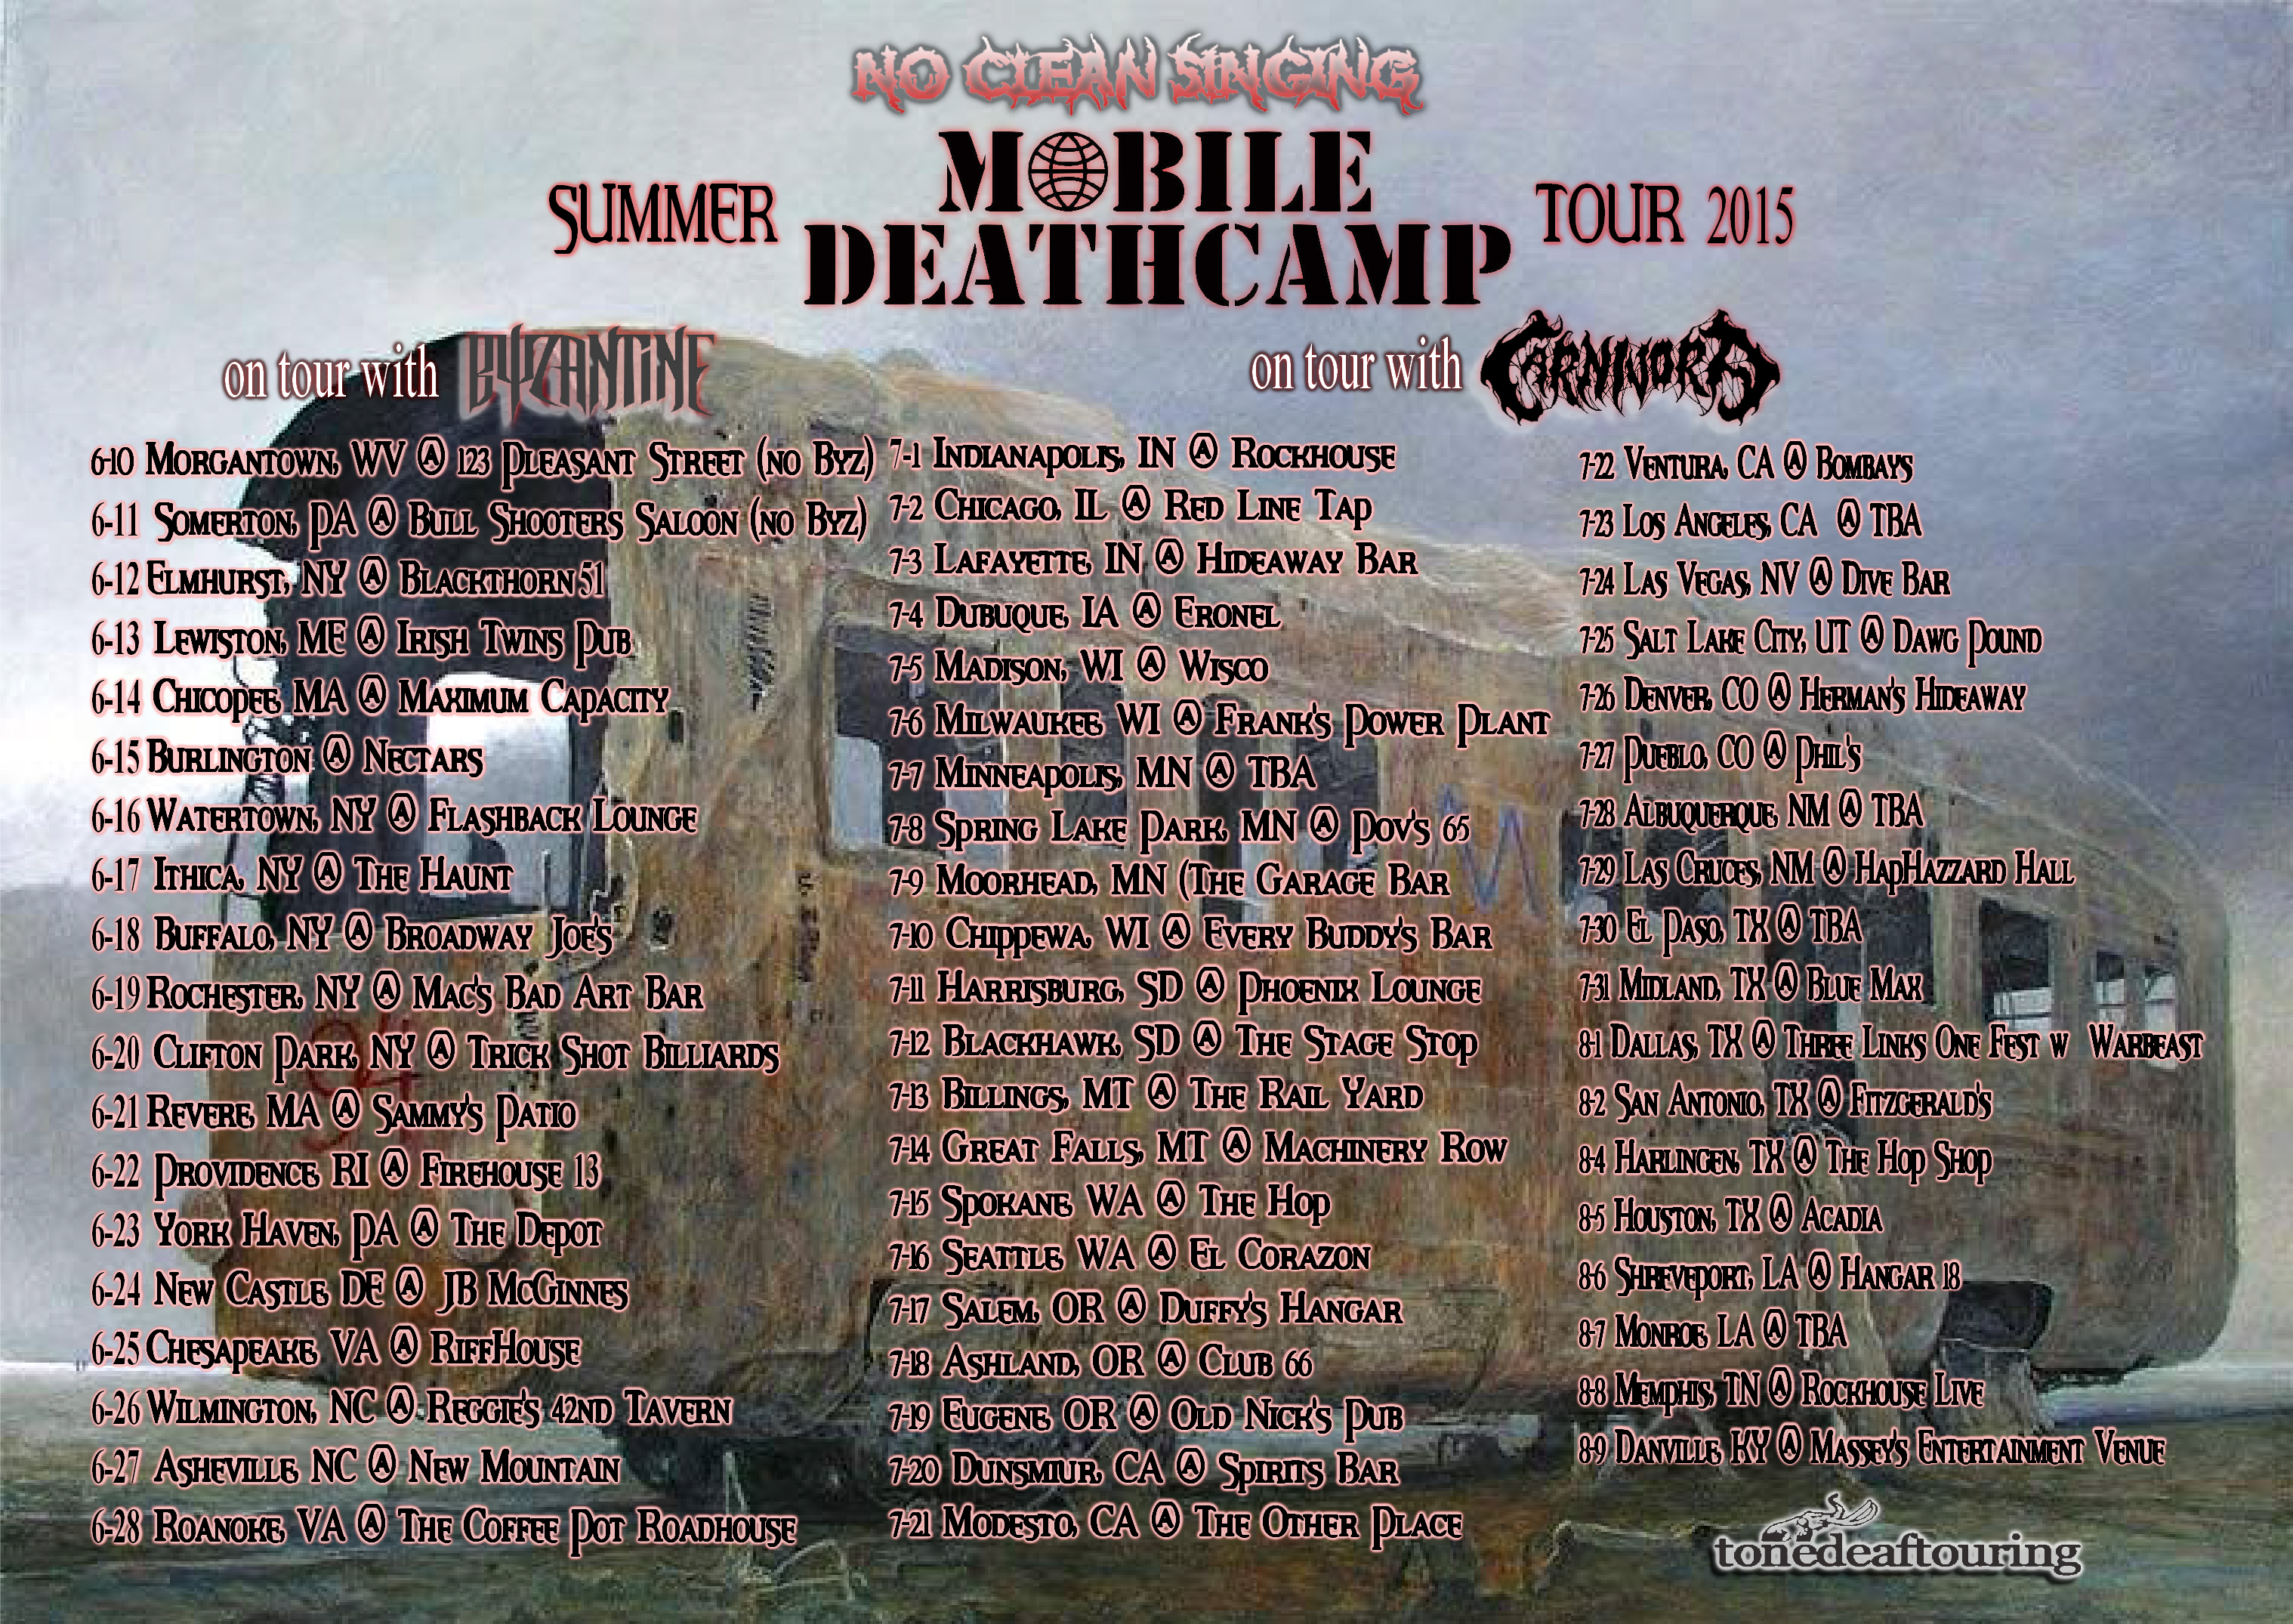 NO CLEAN SINGING
SUMMER
MOBILE
DEATHCAMP
TOUR 2015
on tour with BYZANTINE
6-10 Morgantown, WV @ 123 Pleasant Street (no Byz)
6-11 Somerton, PA @ Bull Shooters Saloon (no Byz)
6-12 Elmhurst, NY @ Blackthorn 51
6-13 Lewiston, ME @ Irish Twins Pub
6-14 Chicopee, MA @ Maximum Capacity
6-15 Burlington @ Nectars
6-16 Watertown, NY @ Flashback Lounge
6-17 Ithica, NY @ The Haunt
6-18 Buffalo, NY @ Broadway Joe's
6-19 Rochester, NY @ Mac's Bad Art Bar
6-20 Clifton Park, NY @ Trick Shot Billiards
6-21 Revere, MA @ Sammy's Patio
6-22 Providence, RI @ Firehouse 13
6-23 York Haven, PA @ The Depot
6-24 New Castle, DE @ JB McGinnes
6-25 Chesapeake, VA @ RiffHouse
6-26 Wilmington, NC @ Reggie's 42nd Tavern
6-27 Asheville, NC @ New Mountain
6-28 Roanoke, VA @ The Coffee Pot Roadhouse
on tour with CARNIVORA
7-1 Indianapolis, IN @ Rockhouse
7-2 Chicago, IL @ Red Line Tap
7-3 Lafayette, IN @ Hideaway Bar
7-4 Dubuque, IA @ Eronel
7-5 Madison, WI @ Wisco
7-6 Milwaukee, WI @ Frank's Power Plant
7-7 Minneapolis, MN @ TBA
7-8 Spring Lake Park, MN @ Pov's 65
7-9 Moorhead, MN (The Garage Bar
7-10 Chippewa, WI @ Every Buddy's Bar
7-11 Harrisburg, SD @ Phoenix Lounge
7-12 Blackhawk, SD @ The Stage Stop
7-13 Billings, MT @ The Rail Yard
7-14 Great Falls, MT @ Machinery Row
7-15 Spokane, WA @ The Hop
7-16 Seattle, WA @ El Corazon
7-17 Salem, OR @ Duffy's Hangar
7-18 Ashland, OR @ Club 66
7-19 Eugene, OR @ Old Nick's Pub
7-20 Dunsmiur, CA @ Spirits Bar
7-21 Modesto, CA @ The Other Place
7-22 Ventura, CA @ Bombays
7-23 Los Angeles, CA @ TBA
7-24 Las Vegas, NV @ Dive Bar
7-25 Salt Lake City, UT @ Dawg Pound
7-26 Denver, CO @ Herman's Hideaway
7-27 Pueblo, CO @ Phil's
7-28 Albuquerque, NM @ TBA
7-29 Las Cruces, NM @ HapHazzard Hall
7-30 El Paso, TX @ TBA
7-31 Midland, TX @ Blue Max
8-1 Dallas, TX @ Three Links One Fest w Warbeast
8-2 San Antonio, TX @ Fitzgerald's
8-4 Harlingen, TX @ The Hop Shop
8-5 Houston, TX @ Acadia
8-6 Shreveport, LA @ Hangar 18
8-7 Monroe, LA @ TBA
8-8 Memphis, TN @ Rockhouse Live
8-9 Danville, KY @ Massey's Entertainment Venue
tonedeaftouring